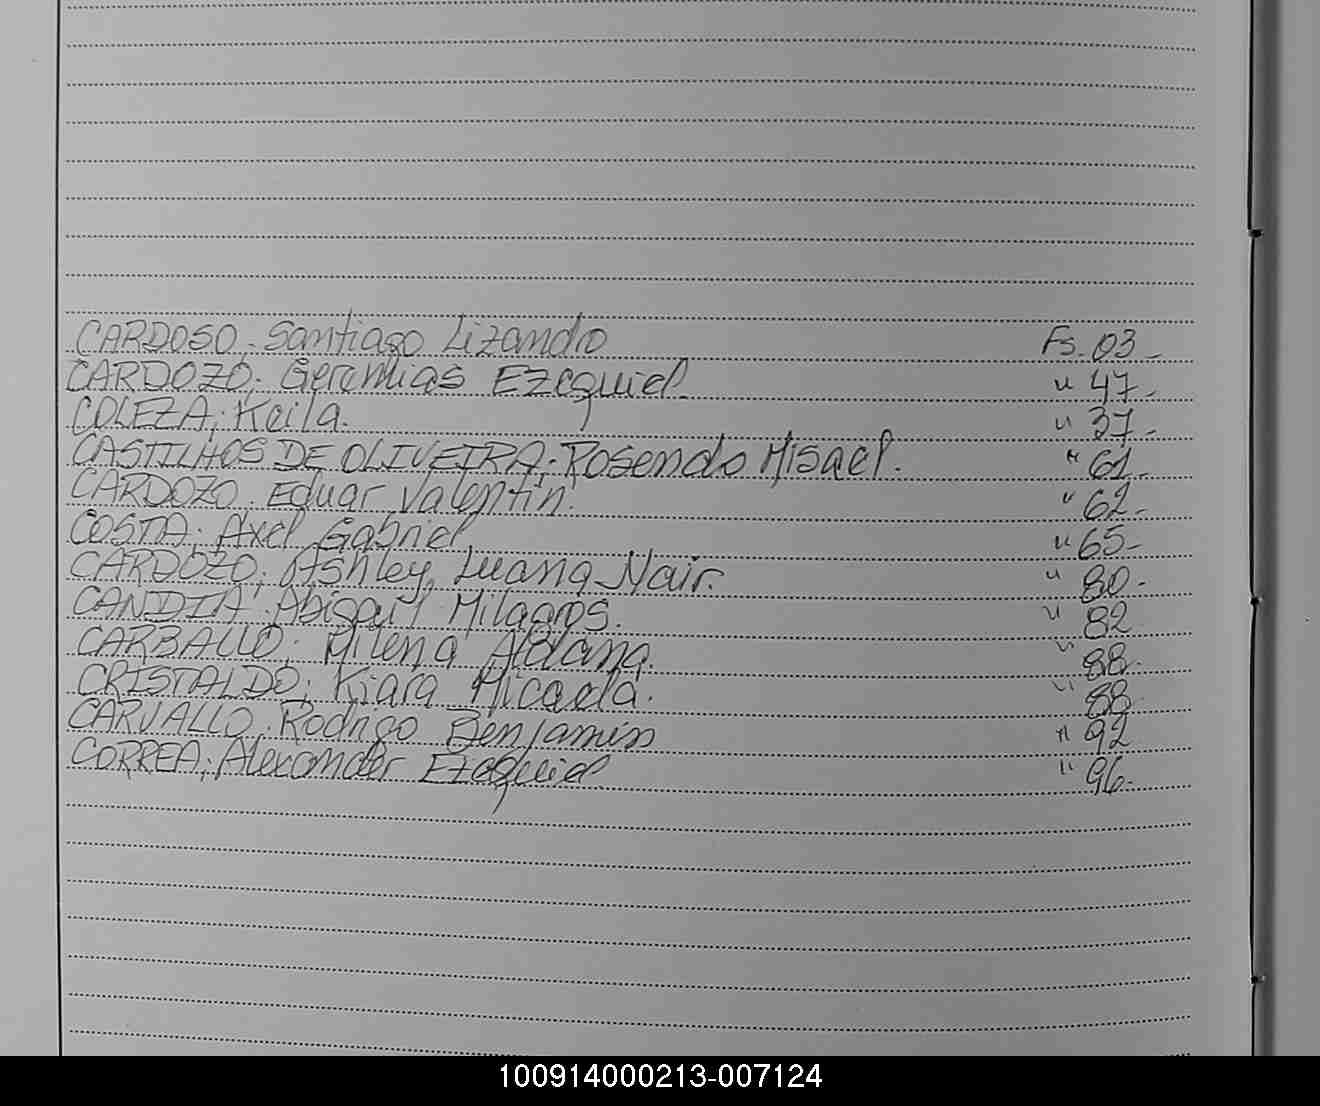 CARDOSO, Santiago Lizandro Fs. 03 -
CARDOZO. Geremias Ezequiel. " 47 -
COLEZA; Keila. " 37 -
CASTILHOS DE OLIVEIRA. Rosendo Misael. " 61 -
CARDOZO. Eduar Valentin. " 62 -
COSTA. Axel Gabriel " 65 -
CARDOZO; Ashley, Luana Nair. " 80 -
CANDIA. Abigail Milagros. " 82
CARBALLO; Milena Aldana. " 88 -
CRISTALDO; Kiara Micaela. " 88
CARVALLO. Rodrigo Benjamin " 92
CORREA; Alexander Ezequiel " 96 -
100914000213-007124